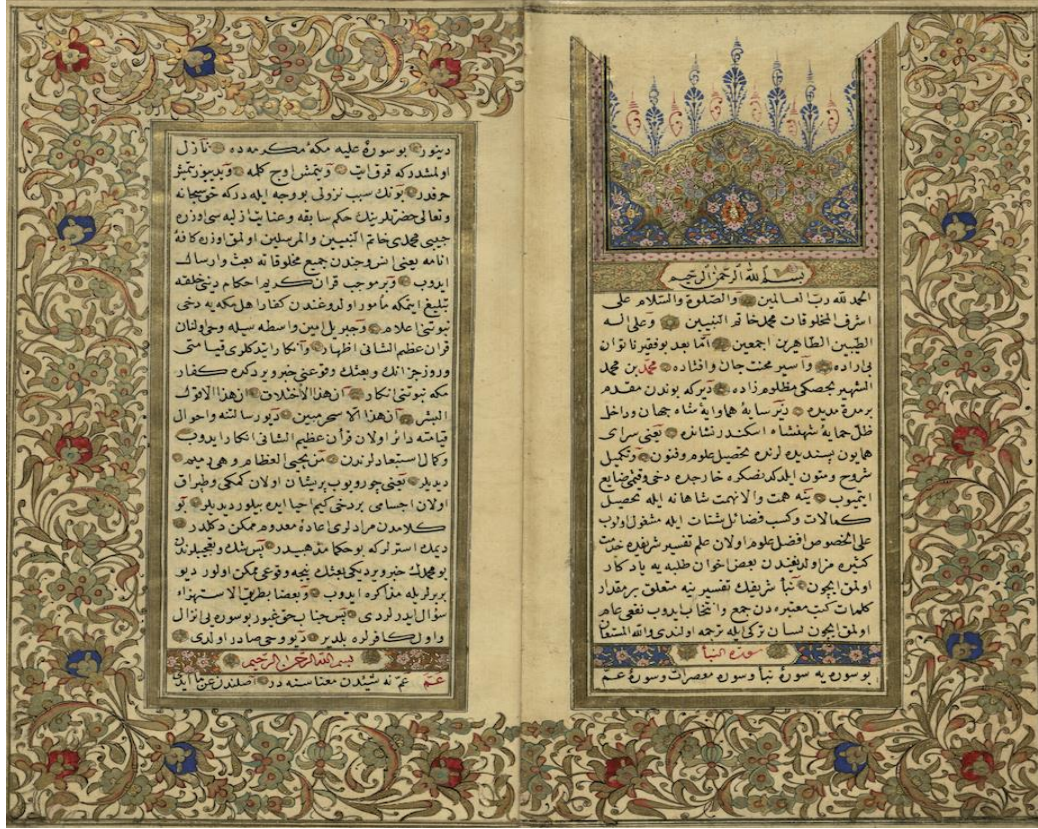 بسم الله الرحمن الرحيم
الحمد لله رب العالمين والصلوة والسلام على
اشرف المخلوقات محمد خاتم النبيين وعلى اله
الطيبين الطاهرين اجمعين اما بعد بو فقير ناتوان
بى زاده وآسير محنت جان وافتاده محمد بن محمد
الشهير بجصكى مظلوم زاده ديركه بوندن مقدم
بر مدة مديده در سايۀ همايۀ شاه جهان وداخل
ظل حمايۀ شهنشاه اسكندر نشانده يعنى سراى
همايون پسنديده لرنده تحصيل علوم وفنون وتكميل
شروح ومتون ايلدكدنصكره خارجده دخى وقتى ضايع
ايتميوب ينه همت والانهمت شاهانه ايله تحصيل
كمالات وكسب فضائل شتات ايله مشغول اولوب
على الخصوص افضل علوم اولان علم تفسير شريفده خدمت
كثيره مز اولديغندن بعضا خوان طلبه يه يادكار
اولمق ايچون نبأ شريفك تفسيرينه متعلق بر مقدار
كلمات كتب معتبره دن جمع وانتخاب ايدوب نفعى عام
اولمق ايچون لسان تركى ايله ترجمه اولندى والله المستعان
سورة النبأ
بو سوره يه سورۀ نبأ وسوره معصرات وسورۀ عم
دينور بو سورۀ عليه مكۀ مكرمه ده نازل
اولمشدر كه قرق ايت ويتمش اوچ كلمه ويديوز يتمش
حرفدر بونك سبب نزولى بو وجه ايله در كه حق سبحانه
وتعالى حضرتلرينك حكم سابقه وعنايت ازليه سى اوزره
حبيبى محمدى خاتم النبيين والمرسلين اولمق اوزره كافۀ
انامه يعنى انس وجندن جميع مخلوقاته بعث وارسال
ايدوب وبر موجب قران كريم احكام دينى خلقه
تبليغ ايتمكه مأمور اولدوغندن كفار اهل مكه يه دخى
نبوتنى اعلام وجبريل امين واسطه سيله وحى اولنان
قران عظيم الشانى اظهار وانكار ايتدكلرى قيامتى
وروز جزانك وبعثك وقوعنى خبر ويردكده كفار
مكه نبوتنى انكار ان هذا الا اختلاق ان هذا الا قول
البشر ان هذا الا سحر مبين ديو رسالتنه واحوال
قيامته دائر اولان قرأن عظيم الشانى انكار ايدوب
وكمال استبعادلرندن من يحيى العظام وهى رميم
ديديلر يعنى چوريوب پريشان اولان كمكى وطپراق
اولان اجسامى بر دخى كيم احيا ايده بيلور ديديلر بو
كلامدن مرادلرى اعادۀ معدوم ممكن دكلدر
ديمك استرلر كه بو حكما مذهبيدر پس شك وتعجبلرندن
بو محمدك خبر ويرديكى بعثك نيجه وقوعى ممكن اولور ديو
بربرلريله مذاكره ايدوب وبعضا بطريق الاستهزاء
سؤال ايدرلردى پس جناب حق غيور بو سوره يى انزال
واول كافرلره بلدير ديو وحى صادر اولدى
بسم الله الرحمن الرحيم
عم عم نه شيئدن معناسنه در اصلندن عن ما ايدى